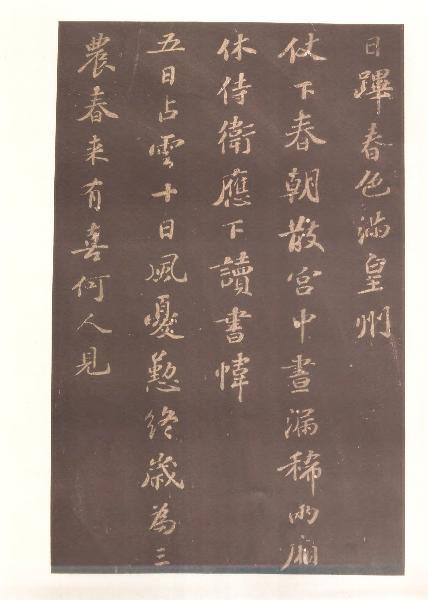 日蹕春色滿皇州
仗下春朝散宮中晝漏稀兩廂
休侍衛應下讀書幃
五日占雲十日風憂懃終歲為三
農春来有喜何人見